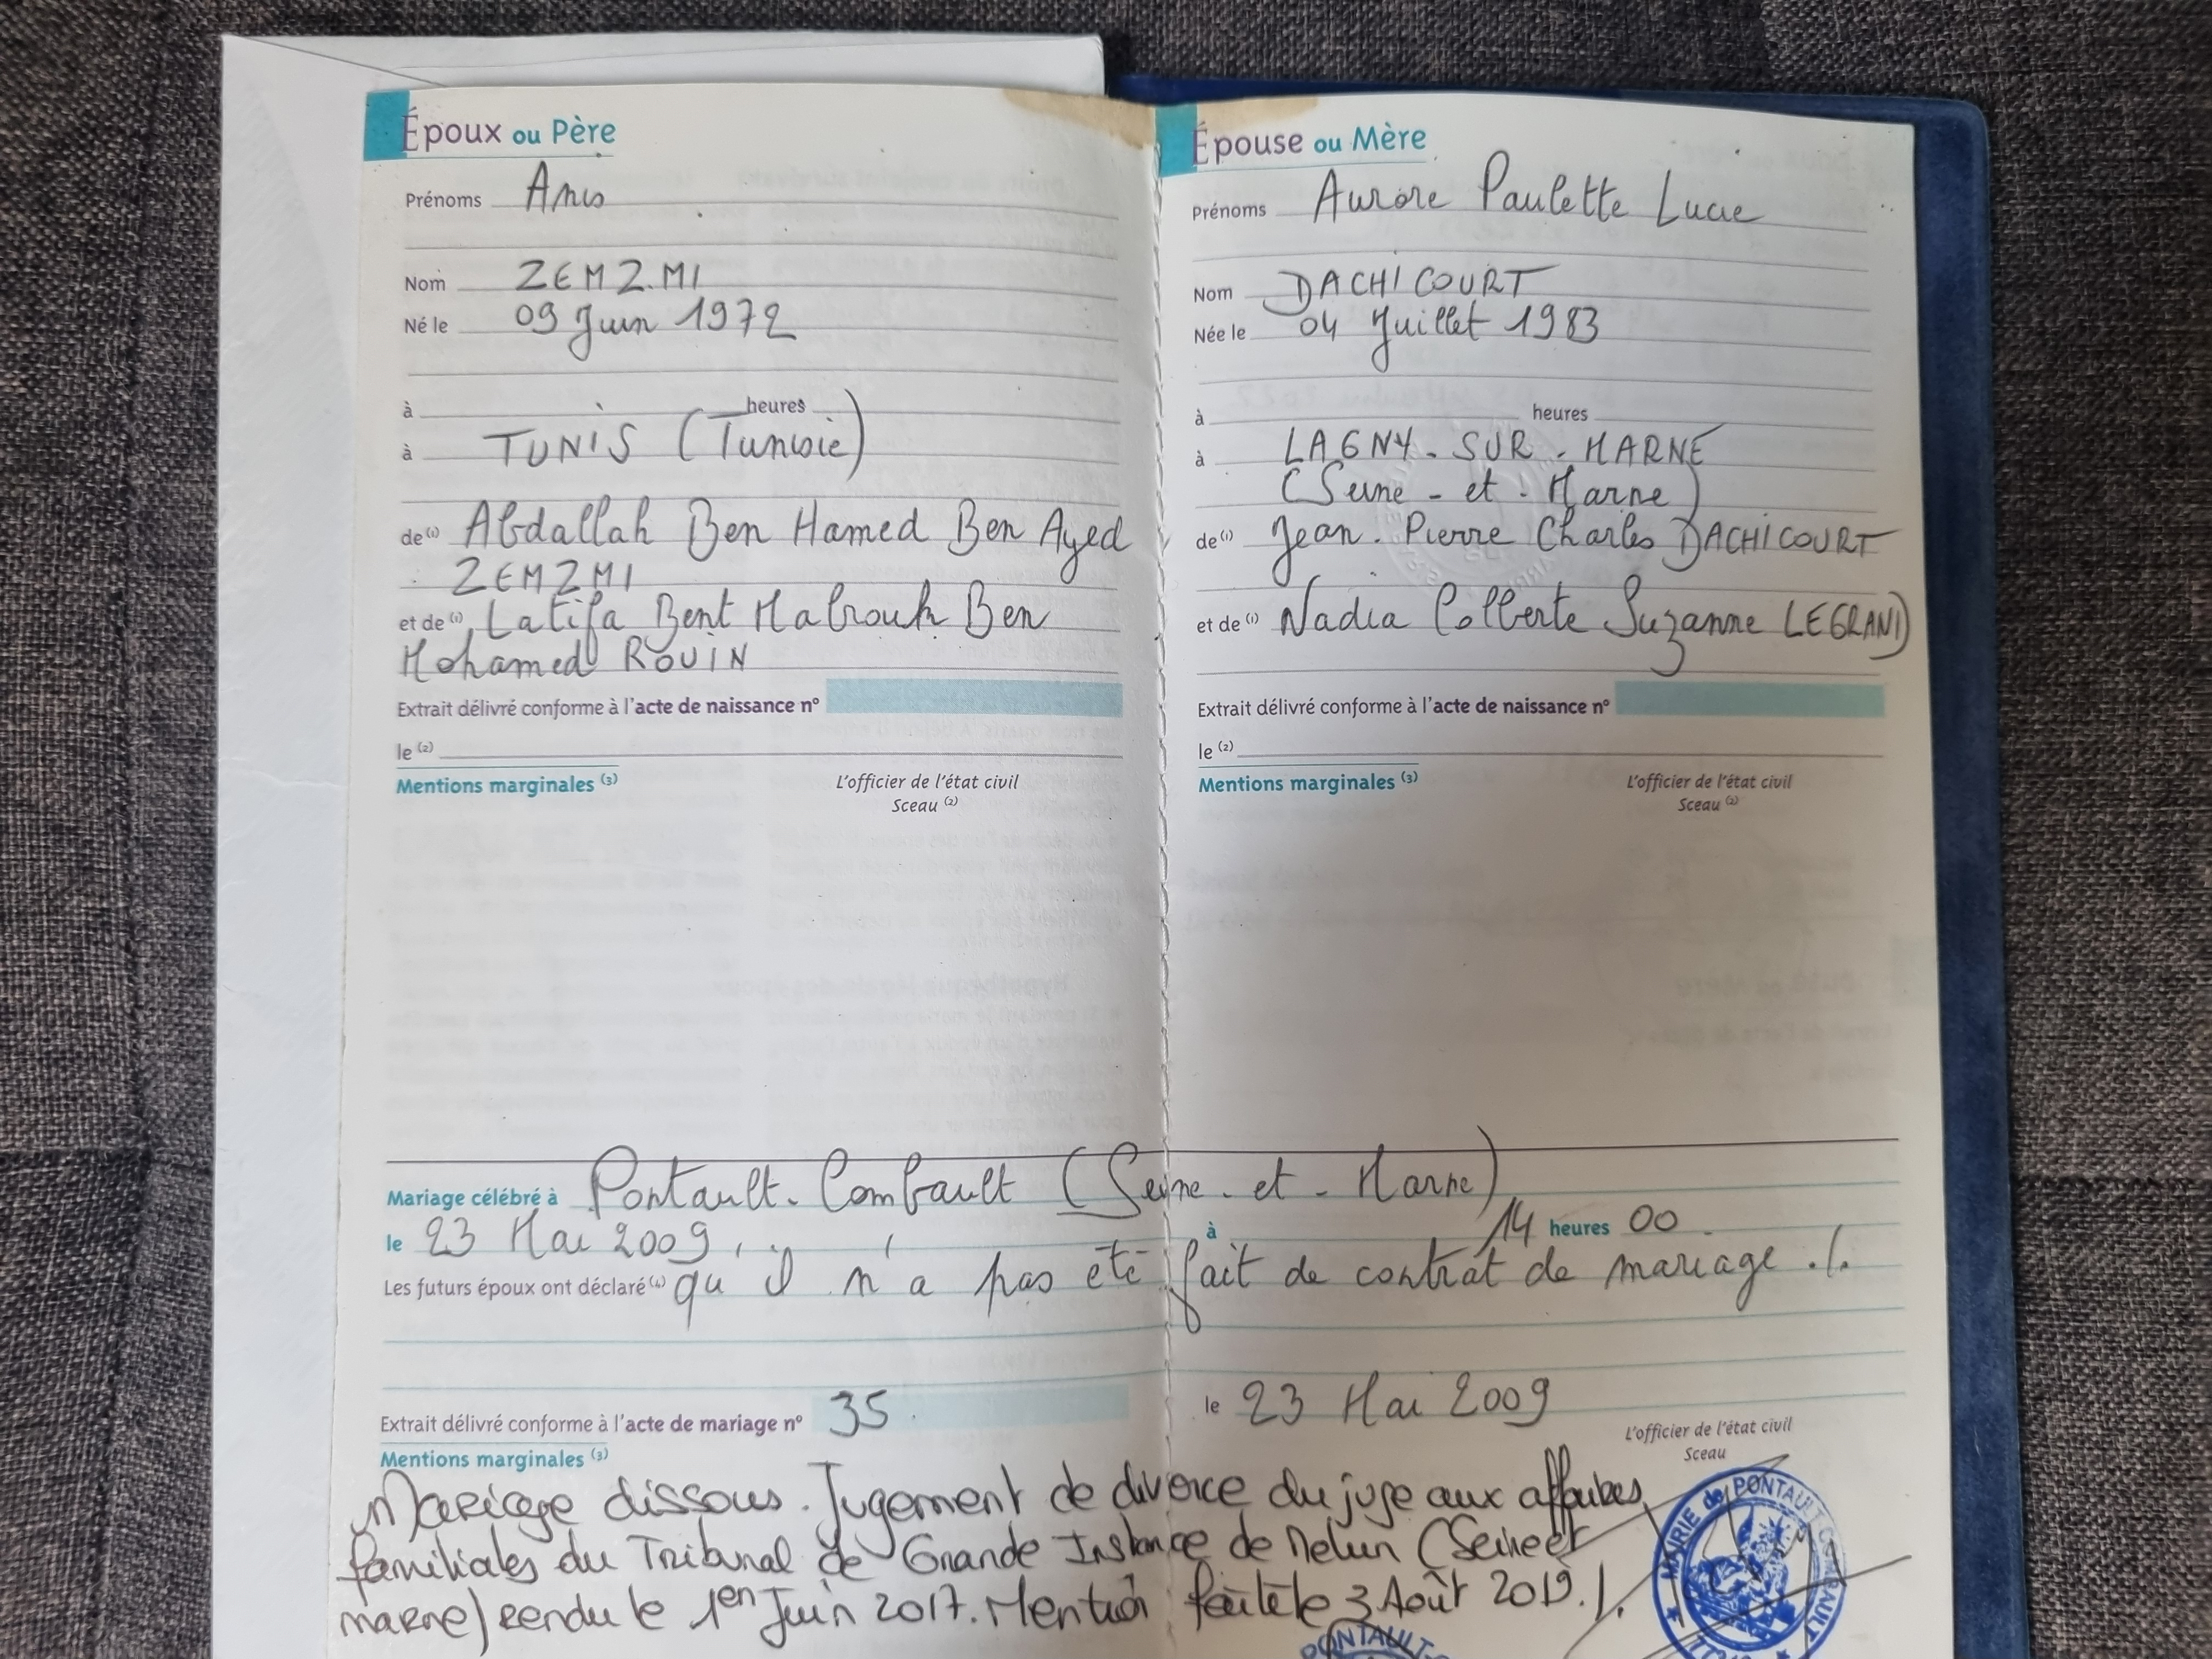 Époux ou Père
Prénoms Anis
Nom ZEMZMI
Né le 09 Juin 1972
à heures
à TUNIS (Tunisie)
de (1) Abdallah Ben Hamed Ben Ayed
ZEMZMI
et de (1) Latifa Bent Mabrouk Ben
Mohamed ROUIN
Extrait délivré conforme à l'acte de naissance n°
le (2)
Mentions marginales (3)
L'officier de l'état civil
Sceau (2)
Épouse ou Mère
Prénoms Aurore Paulette Lucie
Nom DACHICOURT
Née le 04 Juillet 1983
à heures
à LAGNY-SUR-MARNE
(Seine-et-Marne)
de (1) Jean-Pierre Charles DACHICOURT
et de (1) Nadia Colberte Suzanne LEGRAND
Extrait délivré conforme à l'acte de naissance n°
le (2)
Mentions marginales (3)
L'officier de l'état civil
Sceau (2)
Mariage célébré à Pontault-Combault (Seine-et-Marne)
le 23 Mai 2009, à 14 heures 00
Les futurs époux ont déclaré (4) qu'il n'a pas été fait de contrat de mariage ./.
Extrait délivré conforme à l'acte de mariage n° 35 le 23 Mai 2009
Mentions marginales (3)
L'officier de l'état civil
Sceau
Mariage dissous. Jugement de divorce du juge aux affaires
familiales du Tribunal de Grande Instance de Melun (Seine et
marne) rendu le 1er Juin 2017. Mention faite le 3 Août 2019./.
MAIRIE de PONTAULT COMBAULT
PONTAULT